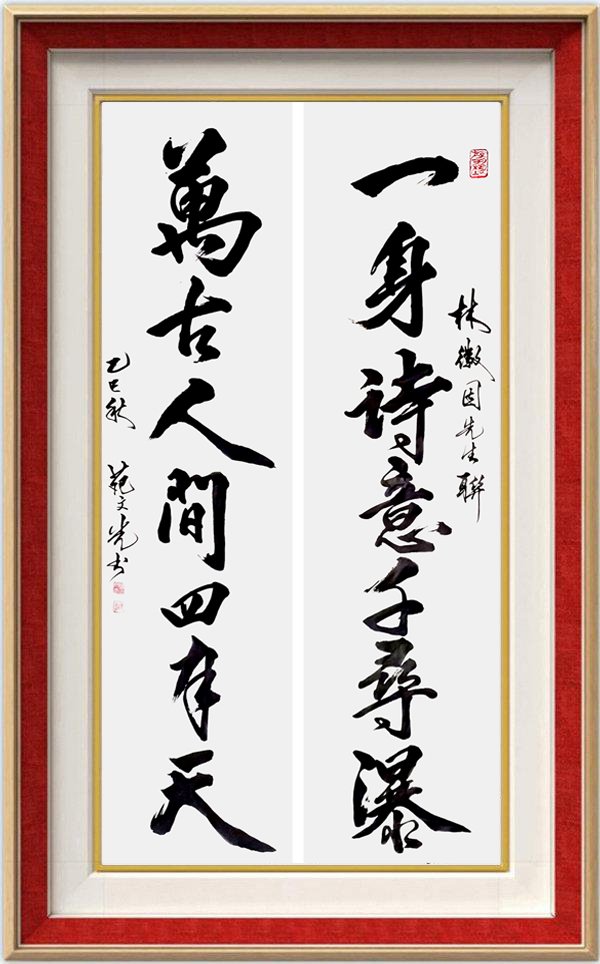 一身诗意千尋瀑
林徽因先生聯
萬古人間四年天
乙巳秋 范文光书